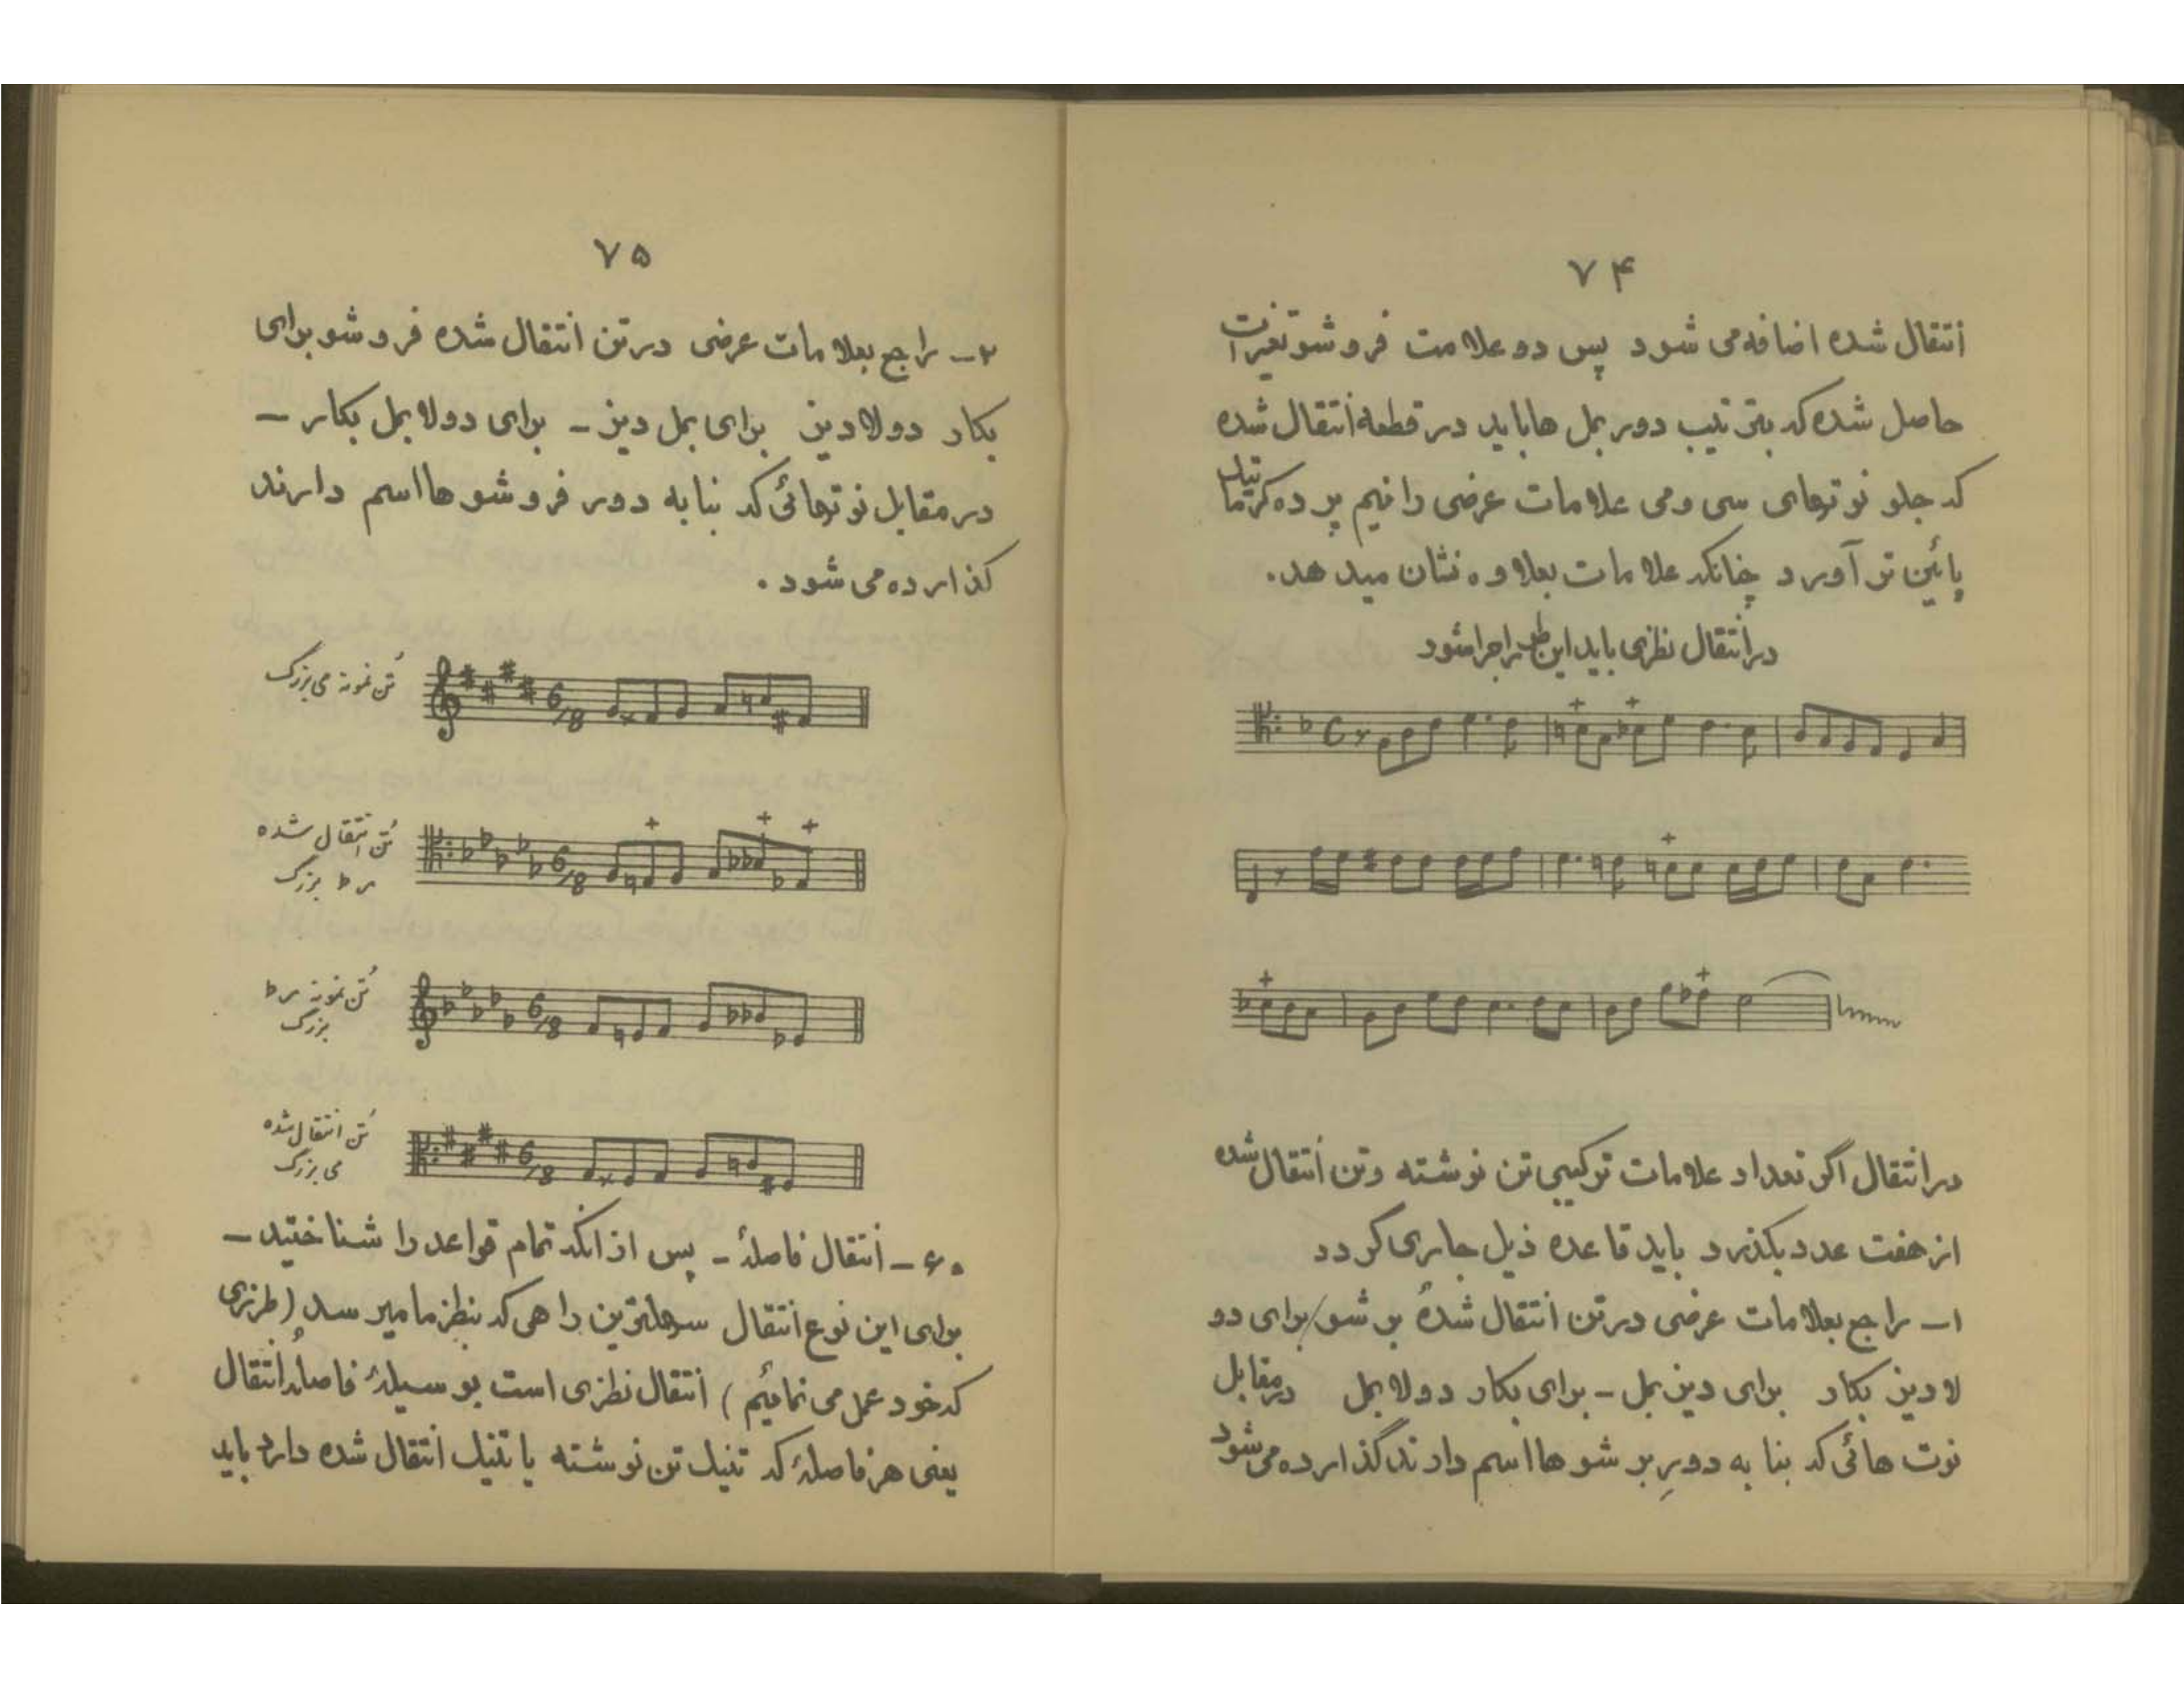 ۷۴
انتقال شده اضافه می شود پس دو علامت فروشو تغیرات
حاصل شده که بترتیب دور بمل ها باید در قطعه انتقال شده
که جلو نوتهای سی و می علامات عرضی را نیم پرده کرماتیک
پائین تر آورد چنانکه علامات بعلاوه نشان میدهد.
در انتقال نظری باید این طور اجرا شود
در انتقال اگر تعداد علامات ترکیبی تن نوشته و تن انتقال شده
از هفت عدد بکذرد باید قاعده ذیل جاری کردد
۱ــ راجع بعلامات عرضی در تن انتقال شدهٔ بر شو/برای دو
لا دیز بکار برای دیز بمل ــ برای بکار دولا بمل در مقابل
نوت هائی که بنا به دورِ بر شو ها اسم دارند گذارده می شود
۷۵
۲ــ راجع بعلامات عرضی در تن انتقال شده فرو شو برای
بکار دولا دیز برای بمل دیز ــ برای دولا بمل بکار ــ
در مقابل نوتهائی که بنا به دور فرو شو ها اسم دارند
کذارده می شود .
تُن نمونه می بزرگ
6/8
تُن انتقال شده
ر ♭ بزرگ
6/8
تُن نمونه ر ♭
بزرگ
6/8
تُن انتقال شده
می بزرگ
6/8
۶۰ــ انتقال فاصلهٔ ــ پس از انکه تمام قواعد را شناختید ــ
برای این نوع انتقال سهلترین راهی که بنظر ما میرسد (طرزی
که خود عمل می نمائیم) انتقال نظری است بوسیلهٔ فاصلهٔ انتقال
یعنی هر فاصلهٔ که تنیک تن نوشته با تنیک انتقال شده دارد باید